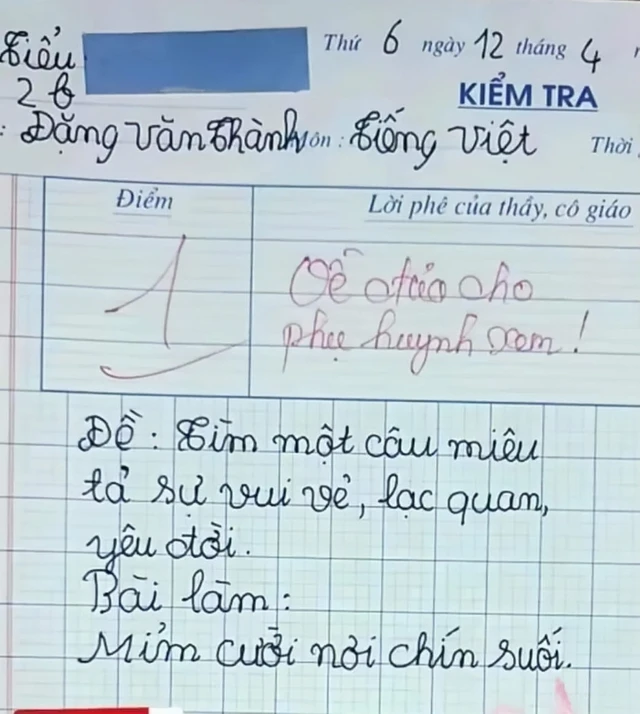 Tiểu
Thứ 6 ngày 12 tháng 4
2
KIỂM TRA
: Đặng Văn Thành Môn : Tiếng Việt Thời
Điểm
Lời phê của thầy, cô giáo
1
Về đưa cho
phụ huynh xem!
Đề: Tìm một câu miêu
tả sự vui vẻ, lạc quan,
yêu đời.
Bài làm:
Mỉm cười nơi chín suối.